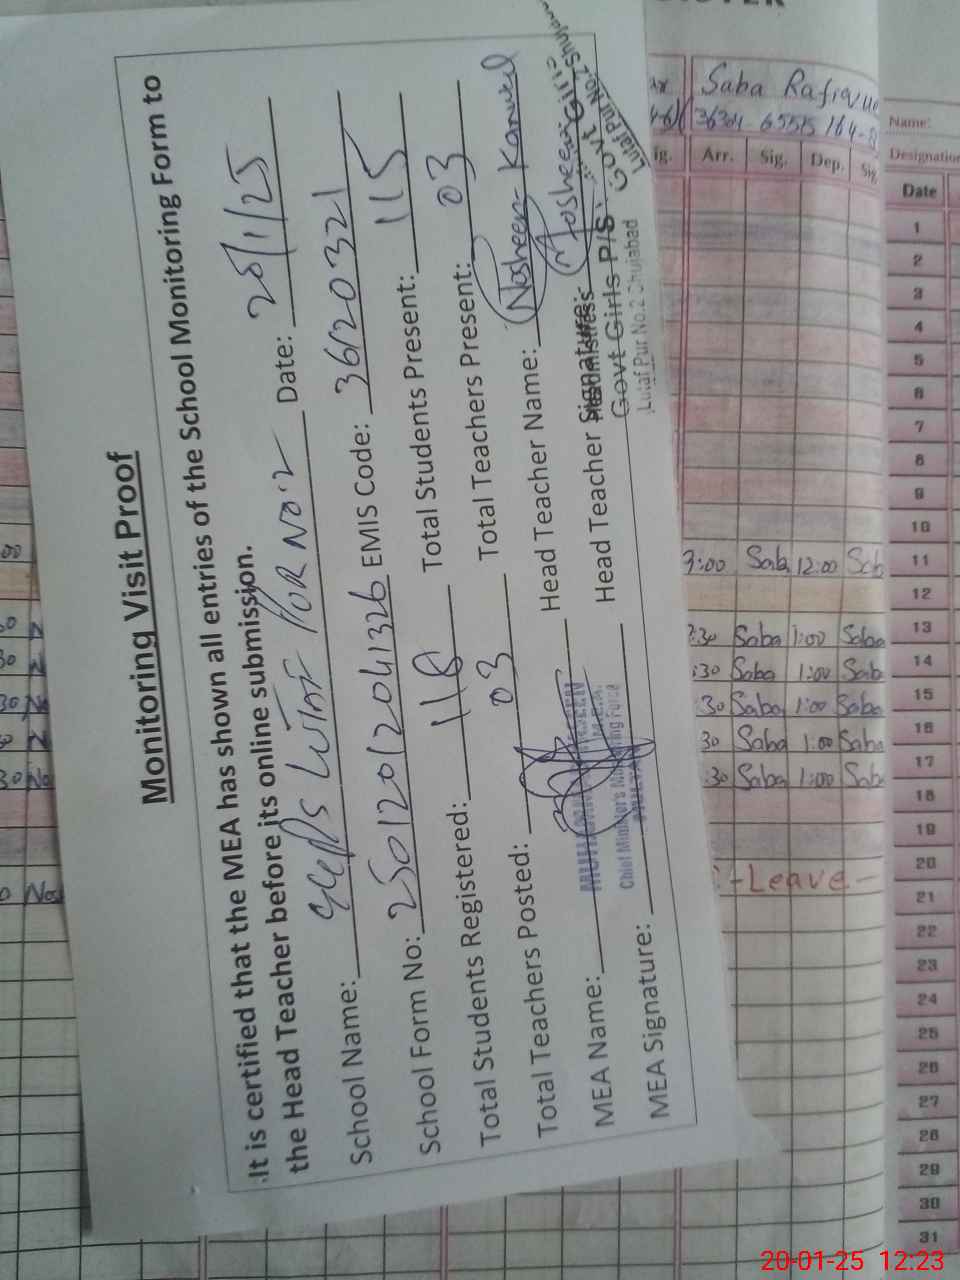 Monitoring Visit Proof
It is certified that the MEA has shown all entries of the School Monitoring Form to
the Head Teacher before its online submission.
School Name: GGPS Lutaf Pur No.2 Date: 20/1/25
School Form No: 25012012041326 EMIS Code: 36120321
Total Students Registered: 118 Total Students Present: 115
Total Teachers Posted: 03 Total Teachers Present: 03
MEA Name: Head Teacher Name: Nosheen Kanwal
MEA Signature: Head Teacher Signature: Nosheen
Chief Minister's Monitoring Force
Headmistress
Govt Girls P/S
Lutaf Pur No.2 Shujabad
Govt Girls
Lutaf Pur No.2 Shujabad
Saba Rafique
Arr. Sig. Dep. Sig.
9:00 Saba 12:00 Sab
:30 Saba 1:00 Saba
:30 Saba 1:00 Sab
:30 Saba 1:00 Saba
30 Saba 1:00 Saba
:30 Saba 1:00 Sab
-Leave-
Name:
Designation
Date
1
2
3
4
5
6
7
8
9
10
11
12
13
14
15
16
17
18
19
20
21
22
23
24
25
26
27
28
29
30
31
20-01-25 12:23